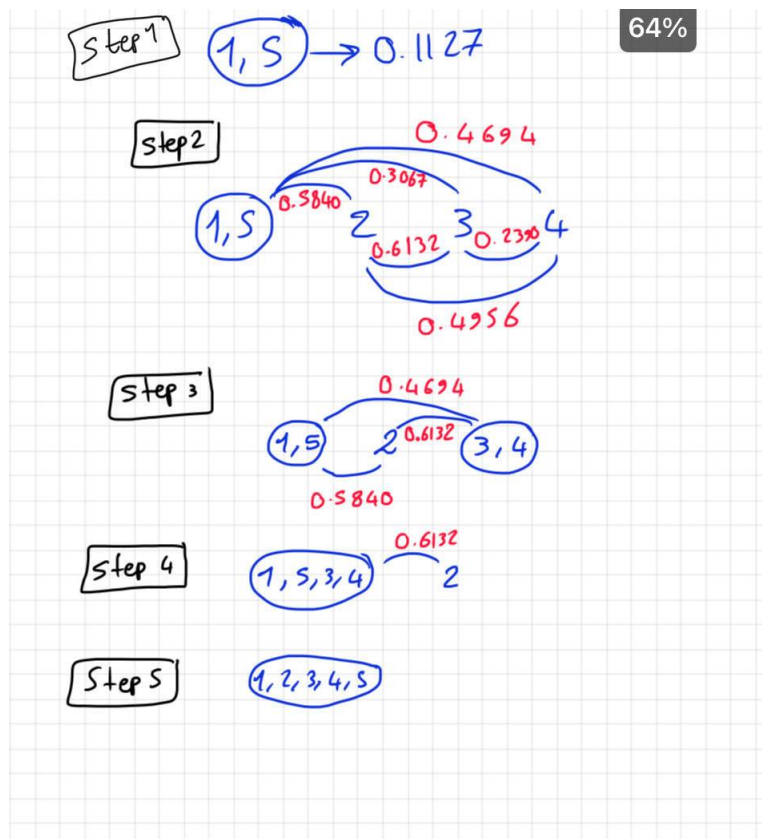 Step 1 1, 5 → 0.1127
64%
Step 2
0.4694
0.3067
0.5840
1, 5 2 3 4
0.6132 0.2390
0.4956
Step 3
0.4694
1, 5 2 0.6132 3, 4
0.5840
Step 4 1, 5, 3, 4 0.6132 2
Step 5 1, 2, 3, 4, 5